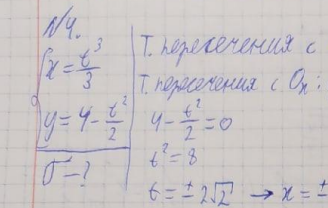 №4.
{x = t³/3
y = 4 - t²/2
σ - ?
Т. пересечения с
Т. пересечения с Ox:
4 - t²/2 = 0
t² = 8
t = ± 2√2 → x = ±